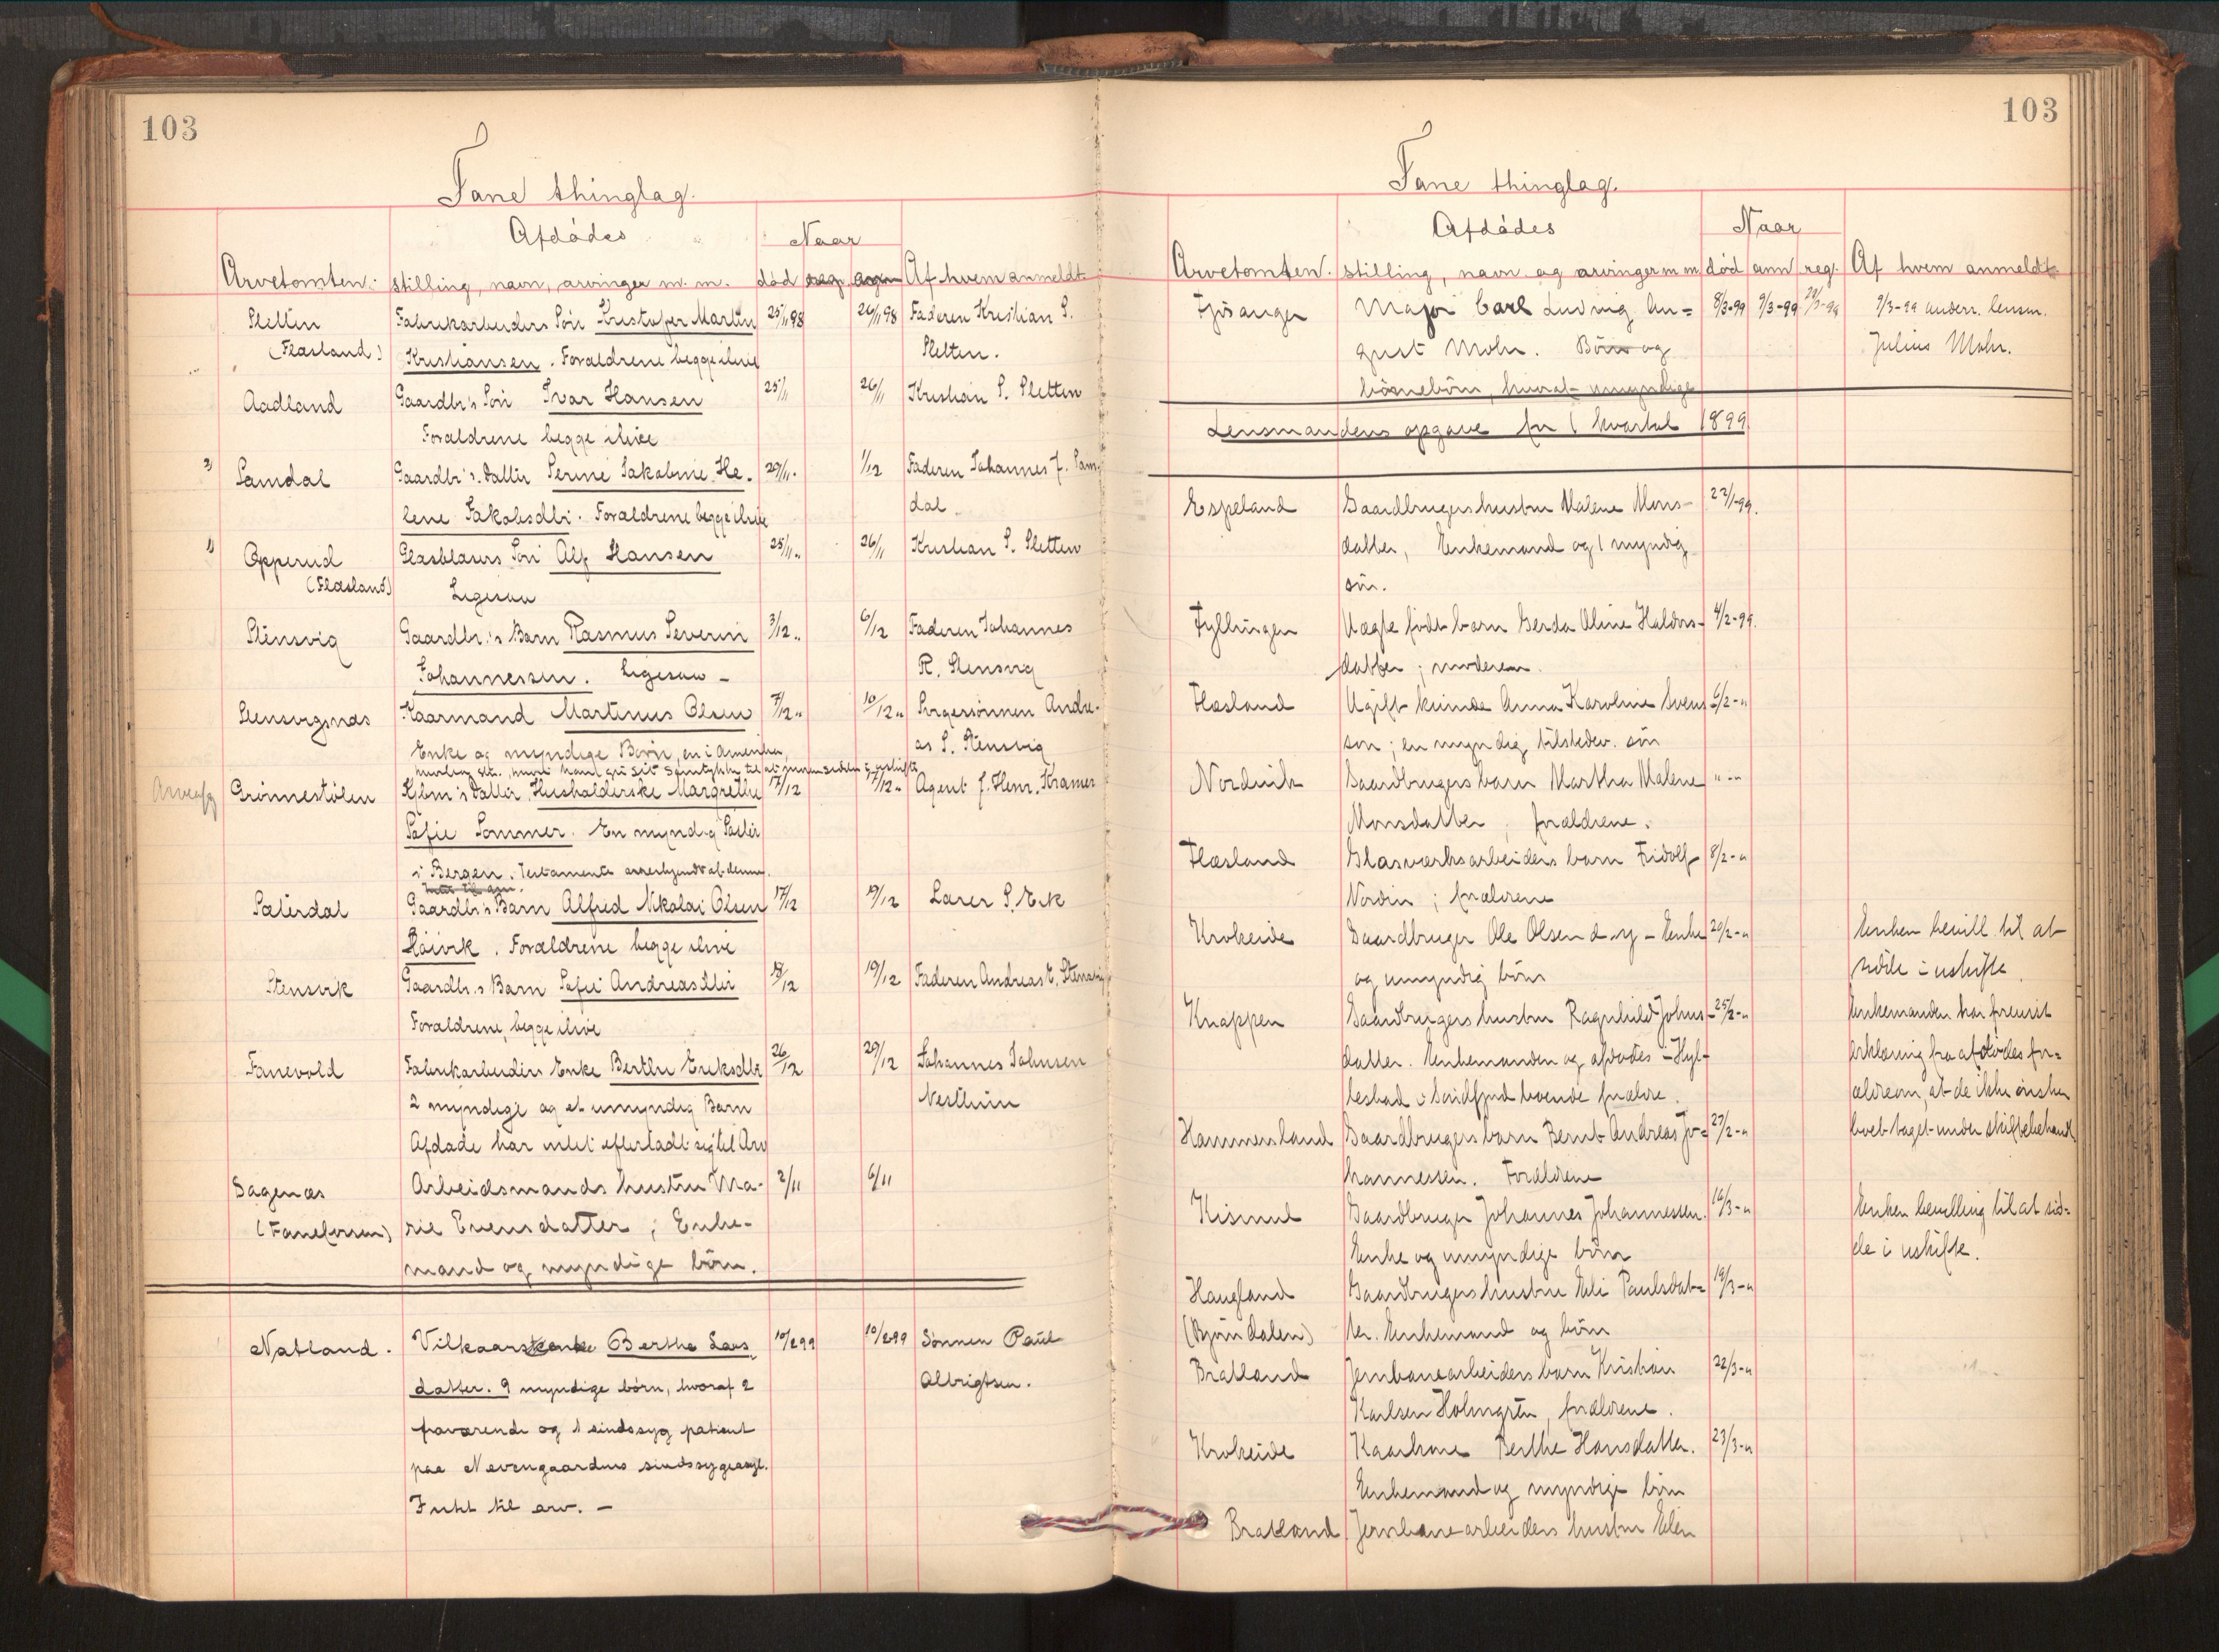 103
Fane thinglag.
Afdödes
Naar
Arvetomten. stilling, navn, arvinger m. m. död reg. Af hvem anmeldt
Sletten Fabrikarbeiders Søn Kristofer Martin 25/11 98 26/11 98 Faderen Kristian S.
(Flæsland) Kristiansen. Forældrene begge ilive Sletten.
Aadland Gaardbr's Søn Ivar Hansen 25/11 26/11 Kristian S. Sletten
Forældrene begge ilive
2) Samdal Gaardbr's Datter Serine Jakobine He- 29/11. 1/12 Faderen Johannes J. Sam-
lene Jakobsdtr. Forældrene begge ilive dal
1) Opperud Glasblæsers Søn Alf Hansen 25/11 26/11 Kristian S. Sletten
(Flæsland) Ligesaa
Stensvig Gaardbr.'s Barn Rasmus Severin 3/12 6/12 Faderen Johannes
Johannessen. Ligesaa - R. Stensvig
Stensvignæs Kaarmand Martinus Olsen 7/12 10/12 Svigersønnen Andre-
Enke og myndige Børn, en i Amerika, as S. Stensvig
Grönnestølen Datter, Husholderske Margrethe 17/12 17/12 Agent J. Henr. Kramer
Sofie Sommer. En myndig Datter
i Bergen. Testamente
Sæterdal Gaardbr's Barn Alfred Nikolai Olsen 17/12 19/12 Lærer S. Eik
Røivik. Forældrene begge ilive
Stensvik Gaardbr.s Barn Sofie Andreasdtr 18/12 19/12 Faderen Andreas E. Stensvig
Forældrene begge ilive
Fanevold Fabrikarbeiders Enke Berthe Eriksdtr 26/12 29/12 Johannes Johnsen
2 myndige og et umyndig Barn Nesttun
Afdøde har intet efterladt sig til Arv
Sagenæs Arbeidsmands hustru Ma- 2/11 6/11
(Faneforsen) rie Evensdatter; Enke-
mand og myndige børn.
Natland. Vilkaarsenke Berthe Lars- 10/2 99 10/2 99 Sønnen Paul
datter. 9 myndige børn, hvoraf 2 Albrigtsen.
fraværende og 1 sindssyg patient
paa Nevengaardens sindssygeasyl.
Intet til arv. -
103
Fane thinglag.
Afdödes
Naar
Arvetomten. stilling, navn og arvinger m m död anm reg. Af hvem anmeldt
Fjösanger Major Carl Ludvig Au= 8/3-99 9/3-99 9/3-99 lensm.
gust Mohr. Børn og Julius Mohr.
börnebörn, hvoraf umyndige
Lensmandens opgave for 1 kvartal 1899
Espeland Gaardbrugershustru Malene Mons- 22/1-99.
datter, Enkemand og 1 myndig
søn.
Fyllingen Uægte født barn Gerda Oline Haldors- 4/2-99.
datter; moderen.
Flæsland Ugift kvinde Anna Karoline Svens 6/2-"
son; en myndig tilstedev. søn
Nordvik Gaardbrugers barn Martha Malene " -"
Monsdatter, forældrene.
Flæsland Glasværksarbeiders barn Fridolf 8/2-"
Nordin; forældrene
Krokeide Gaardbruger Ole Olsen d. y - Enke 20/2-" Enken bevill til at
og umyndig børn sidde i uskifte.
Knappen Gaardbrugers hustru Ragnhild Johns- 25/2-" Enkemanden har frem
datter. Enkemanden og afdødes i Hyl- erklæring fra afdødes for=
lestad i Søndfjord boende forældre. ældre om, at de ikke ønsker
Hammersland Gaardbrugers barn Bernt Andreas Jo= 27/2-" boet taget under skiftebehandl.
hannessen. Forældrene
Kismul Gaardbruger Johannes Johannessen. 16/3-" Enken bevilling til at sid=
Enke og umyndige børn de i uskifte.
Haugland Gaardbrugers hustru Eli Paulsdat= 19/3-"
(Bjørndalen) ter. Enkemand og børn
Bratland Jernbanearbeiders barn Kristian 22/3-"
Karlsen Holmgren, forældrene.
Krokeide Kaarkone Berthe Hansdatter. 23/3-"
Enkemand og myndige børn
Bratland Jernbanearbeiders hustru Elen